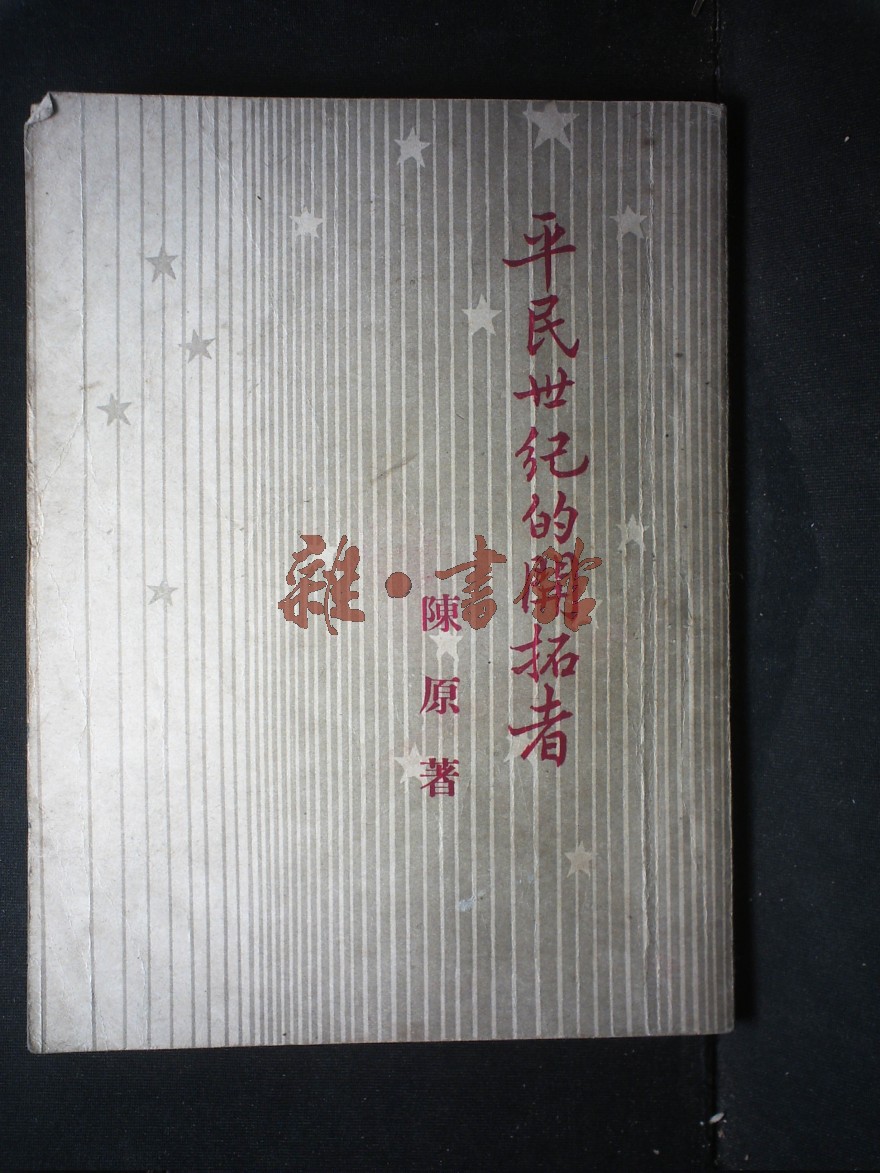 平民世纪的開拓者
陳原著
雜·書館